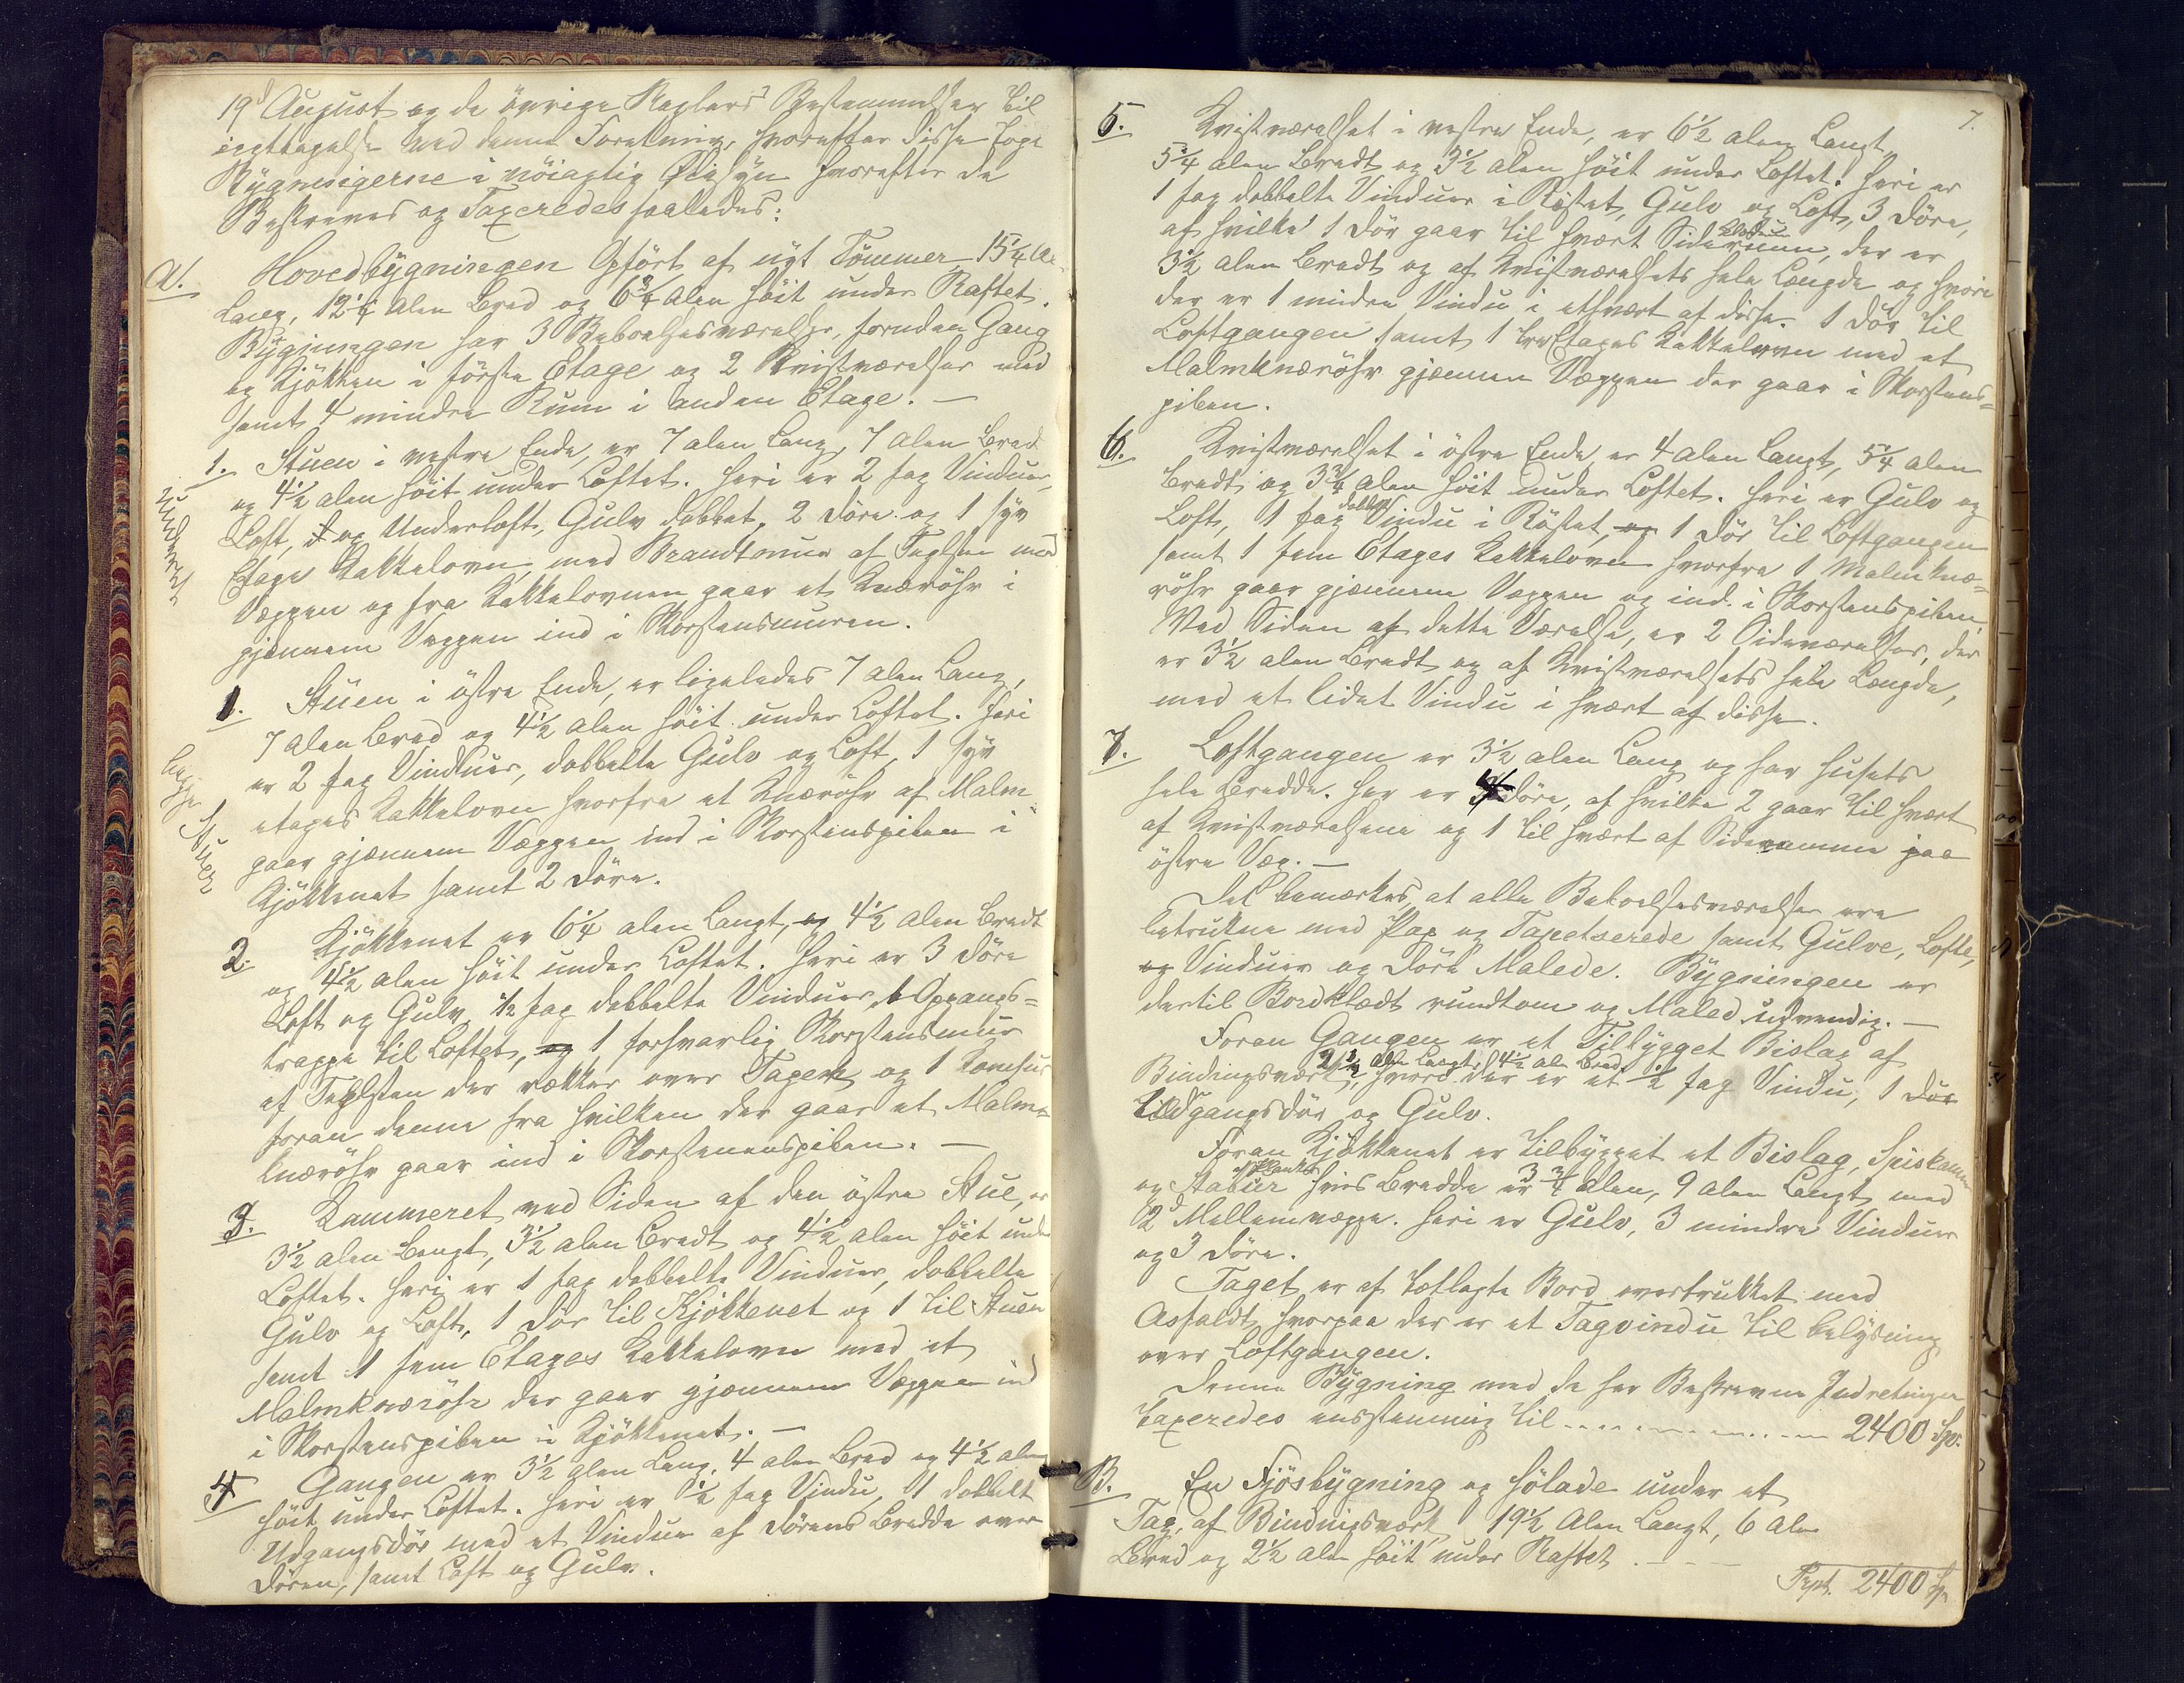 19d August og de övrige Reglers Bestemmelser til
iagttagelse ved denne Foretning, hvorefter disse toge
Bygningerne i nöiagtig Öiesyn hvorefter de
Beskreves og Taxeredes saaledes:
A. Hovedbygningen Opfört af nyt Tömmer 15 1/4 Al.
Lang, 12 1/4 Alen Bred og 6 3/4 Alen höit under Raftet.
Bygningen har 3 Beboelsesværelser, foruden Gang
og Kjökken i förste Etage og 2 Kvistværelser med
samt 4 mindre Rum i anden Etage. —
1. Stuen i vestre Ende, er 7 alen Lang, 7 Alen Bred
og 4 1/2 alen höit under Loftet. Heri er 2 fag Vinduer,
Loft, og Underloft, Gulv dobbet, 2 Döre og 1 syv
Etages Kakkelovn, med Brandtmur af Teglsten ved
Væggen og fra Kakkelovnen gaar et Knæröhr i
gjennem Væggen ind i Skorstensmuren.
1. Stuen i östre Ende, er ligeledes 7 Alen Lang,
7 Alen Bred og 4 1/2 Alen höit under Loftet. Heri
er 2 fag Vinduer, dobbelte Gulv og Loft, 1 syv
etages Kakkelovn hvorfra et Knæröhr af Malm
gaar gjennem Væggen ind i Skorstenspiben i
Kjökkenet samt 2 Döre.
begge Stuer
2. Kjökkenet er 6 1/4 alen Langt, og 4 1/2 Alen Bredt
og 4 1/2 alen höit under Loftet. Heri er 3 Döre
Loft og Gulv, 1/2 fag dobbelte Vinduer, 1 Opgangs=
trappe til Loftet, og 1 forsvarlig Skorstensmur
af Teglsten der rækker over Taget og 1 Komfur
foran denne fra hvilken der gaar et Malm
knærörhr gaar ind i Skorstenenspiben. —
3. Kammeret ved Siden af den östre Stue, er
3 1/2 alen Langt, 3 1/2 alen Bredt og 4 1/2 alen höit under
Loftet. Heri er 1 fag dobbelte Vinduer, dobbelte
Gulv og Loft, 1 Dör til Kjökkenet og 1 til Stuen
samt 1 fem Etages Kakkelovn med et
Malmknærörhr der gaar gjennem Væggen ind
i Skorstenspiben i Kjökkenet. —
4 Gangen er 3 1/2 Alen Lang, 4 alen Bred og 4 1/2 alen
höit under Loftet. Heri er 1/2 fag Vindu, 1 dobbelt
Udgangsdör med et Vindue af Dörens Bredde over
Dören, samt Loft og Gulv.
7.
5. Kvistværelset i vestre Ende, er 6 1/2 alen Langt,
5 1/4 alen Bredt og 3 1/2 alen höit under Loftet. Heri er
1 fag dobbelte Vinduer i Röstet, Gulv og Loft, 3 Döre,
af hvilke 1 Dör gaar til hvert Siderum, der er
3 1/2 alen Bredt og af Kvistværelsets hele Længde og hvori
der er 1 mindre Vindu i ethvert af disse. 1 Dör til
Loftgangen samt 1 tre Etages Kakkelovn med et
Malmknærörhr gjennem Væggen der gaar i Skorstens=
piben.
6. Kvistværelset i östre Ende er 4 Alen Langt, 5 1/4 Alen
Bredt og 3 3/4 Alen höit under Loftet. Heri er Gulv og
Loft, 1 fag dobbelt Vindu i Röstet, og 1 Dör til Loftgangen
samt 1 fem Etages Kakkelovn hvorfra 1 Malmknæ=
röhr gaar gjennem Væggen og ind i Skorstenspiben.
Ved Siden af dette Værelse, er 2 Sideværelser, der
er 3 1/2 alen Bredt og af Kvistværelsets hele Længde,
med et lidet Vindu i hvert af disse.
7. Loftgangen er 3 1/2 alen Lang og har Husets
hele Bredde. Her er 4 Döre, af hvilke 2 gaar til hvert
af Kvistværelserne og 1 til hvert af Siderummene paa
östre Væg. —
Det bemærkes, at alle Beboelsesværelser ere
betrukne med Pap og Tapetserede samt Gulve, Lofte,
og Vinduer og Döre Malede. Bygningen er
dertil Bordklædt rundtom og Malet udvendig. —
Foran Gangen er et Tilbygget Bislag af
Bindingsværk, 2 1/2 Alen Langt, 4 1/2 Al. Bredt hvori der er et 1/2 fag Vindu, 1 Dör
Udgangsdör og Gulv.
Foran Kjökkenet er tilbygget et Bislag, Spiskammer
og Stabur af Planker hvis Bredde er 3 3/4 Alen, 9 Alen Langt med
2 Mellemvægge. Heri er Gulv, 3 mindre Vinduer
og 3 Döre.
Taget er af tætlagte Bord overtrukket med
Asfaldt, hvorpaa der er et Tagvindu til belysning
over Loftgangen.
Denne Bygning med de her Beskrevne Indretninger
taxeredes eensstemmig til - - - - 2400 Spd.
B. En Fjösbygning og Hölade under et
Tag, af Bindingsværk, 19 1/2 Alen Langt, 6 Alen
Bred og 2 1/2 alen höit under Raftet. - - -
Trpt. 2400 Sp